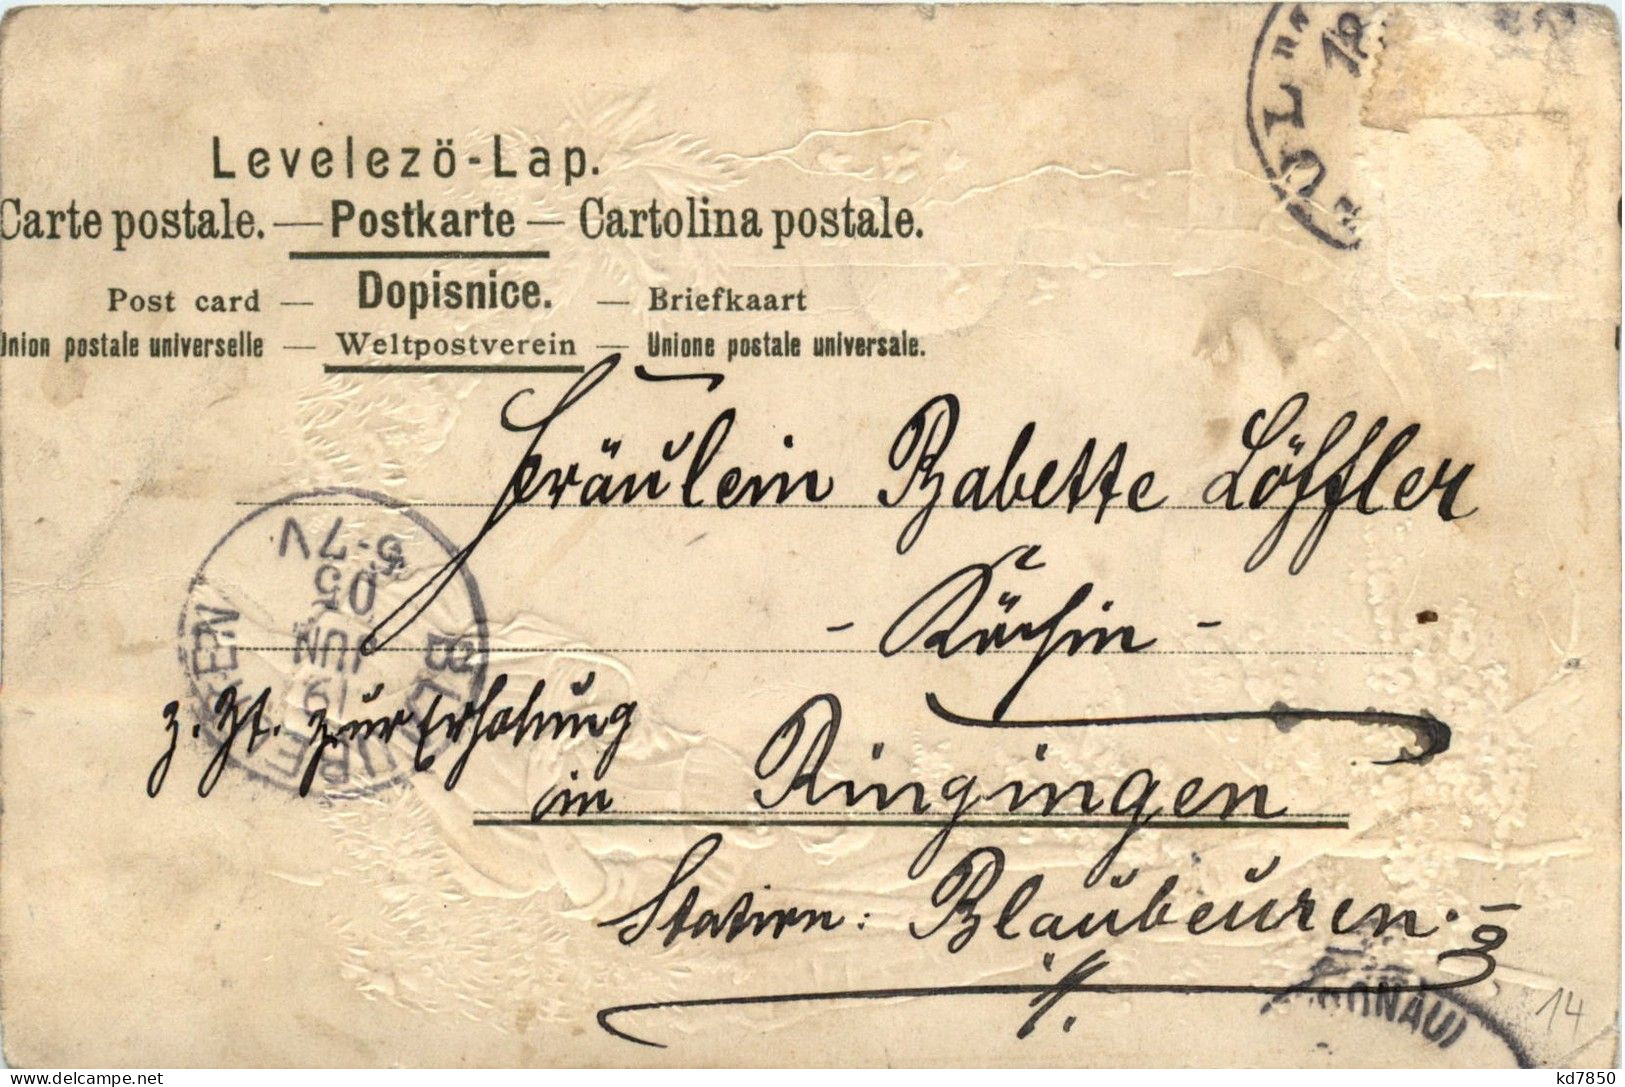 Levelezö-Lap.
Carte postale. — Postkarte — Cartolina postale.
Post card — Dopisnice. — Briefkaart
Union postale universelle — Weltpostverein — Unione postale universale.
Fräulein Babette Löffler
- Köchin -
z. Zt. zur Erholung
in Ringingen
Station: Blaubeuren.
BLAUBEUREN
19
JUN
05
5-7V
ULM
12
(DONAU)
14
kd7850